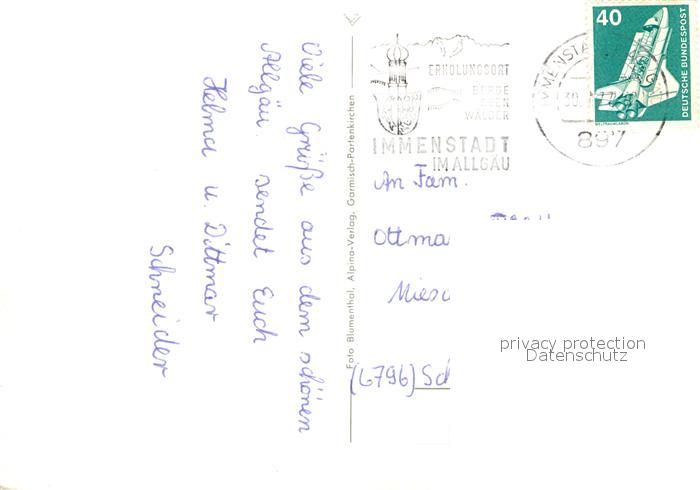 Viele Grüße aus dem schönen
Allgäu sendet Euch
Helma u. Dittmar
Schneider
Foto Blumenthal, Alpina-Verlag, Garmisch-Partenkirchen
ERHOLUNGSORT
BERGE
SEEN
WÄLDER
IMMENSTADT
IM ALLGÄU
897
40
DEUTSCHE BUNDESPOST
WELTRAUMLABOR
An Fam.
Ottma
Miesc
(6796) Sch
privacy protection
Datenschutz